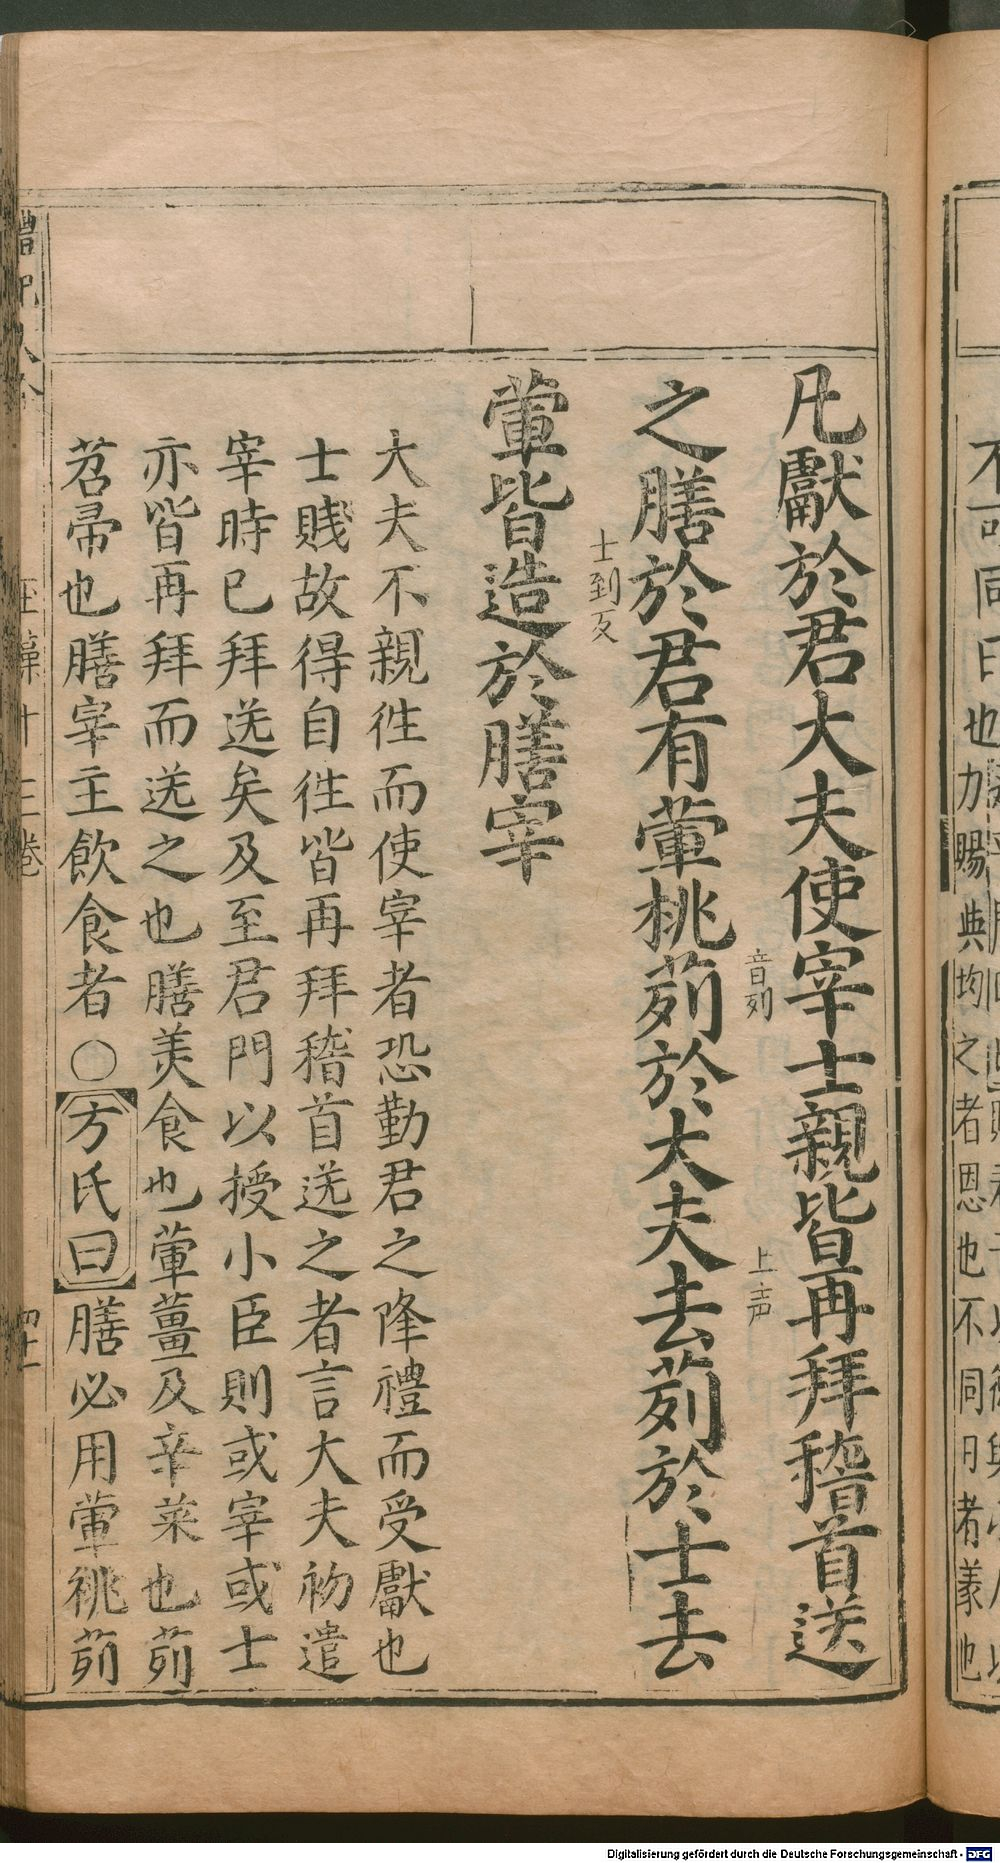 凡獻於君大夫使宰士親皆再拜稽首送
之膳於君有葷桃茢於大夫去茢於士去
音列
上声
葷皆造於膳宰
士到反
大夫不親徃而使宰者恐勤君之降禮而受獻也
士賤故得自徃皆再拜稽首送之者言大夫初遣
宰時已拜送矣及至君門以授小臣則或宰或士
亦皆再拜而送之也膳美食也葷薑及辛菜也茢
苕帚也膳宰主飲食者○方氏曰膳必用葷桃茢
玉藻十三卷
四十一
不可同日也
賜與均之者恩也不同日者義也
Digitalisierung gefördert durch die Deutsche Forschungsgemeinschaft - DFG